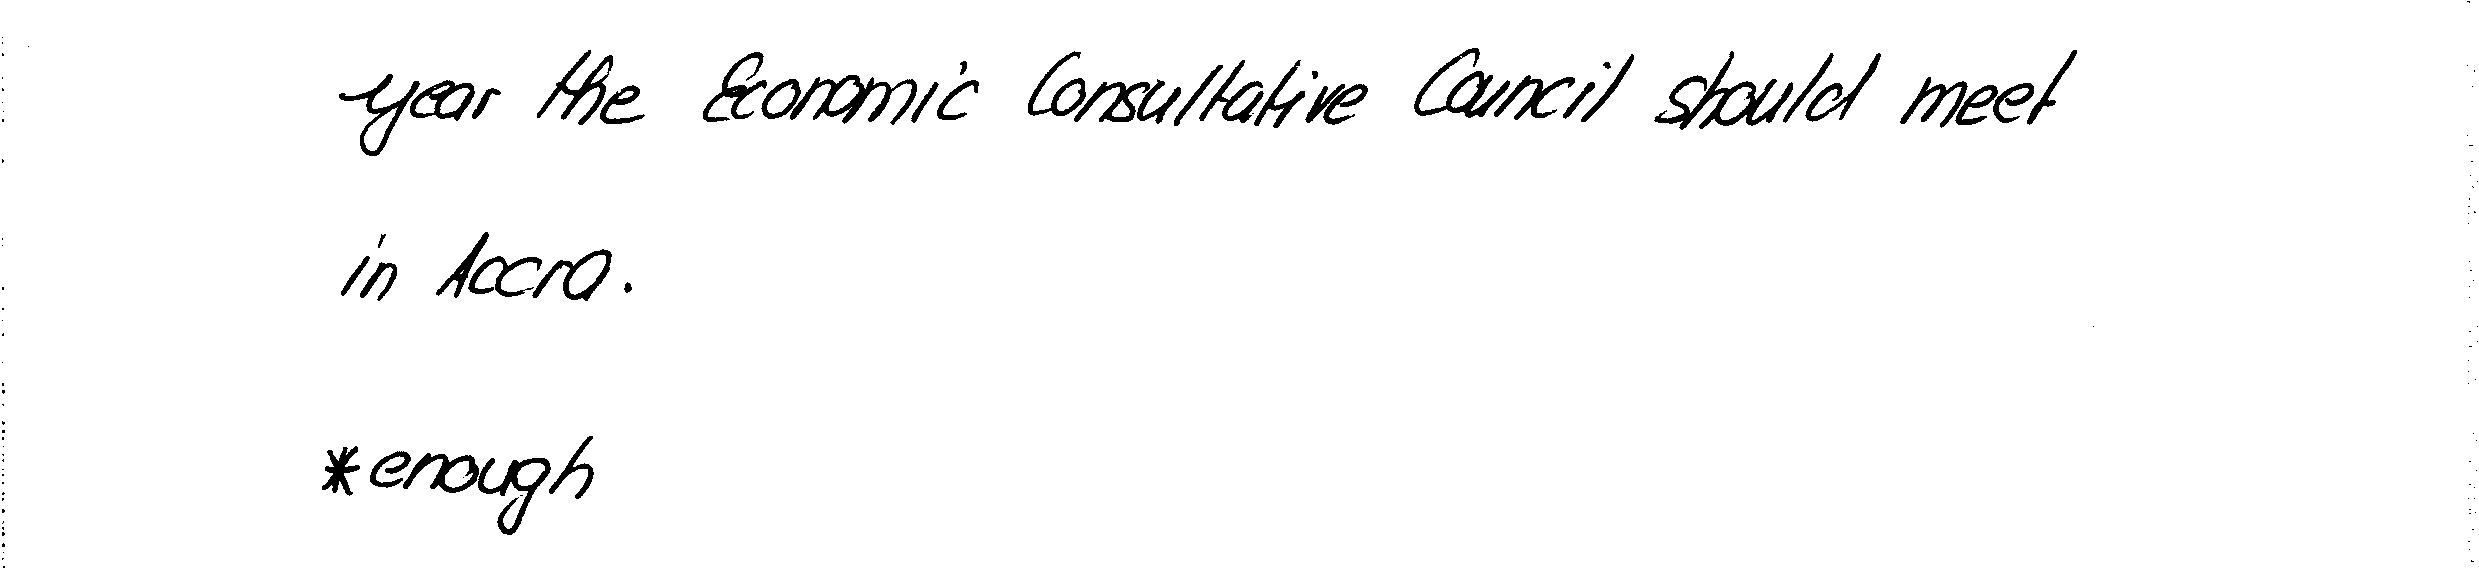 year the Economic Consultative Council should meet
in Accra.
*enough